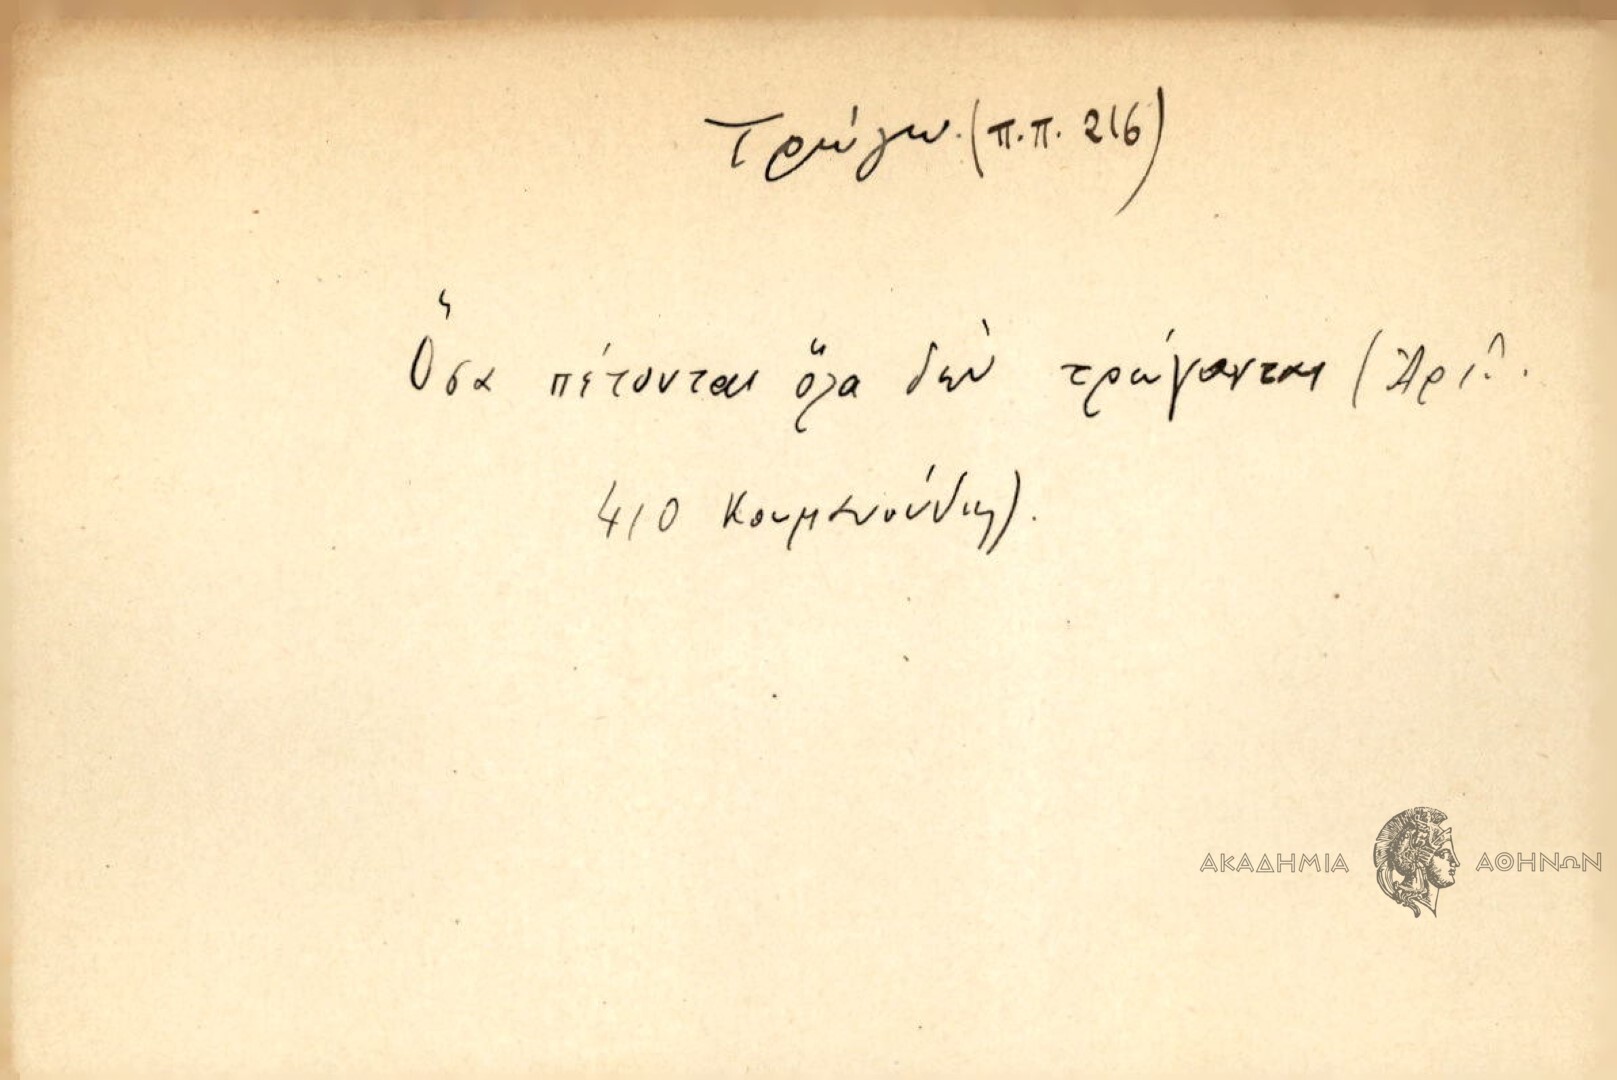 Τρώγω. (π.π. 216)
Ὅσα πέτονται ὅλα δὲν τρώγονται (Ἀρι.
410 Κουμανούδης).
ΑΚΑΔΗΜΙΑ ΑΘΗΝΩΝ